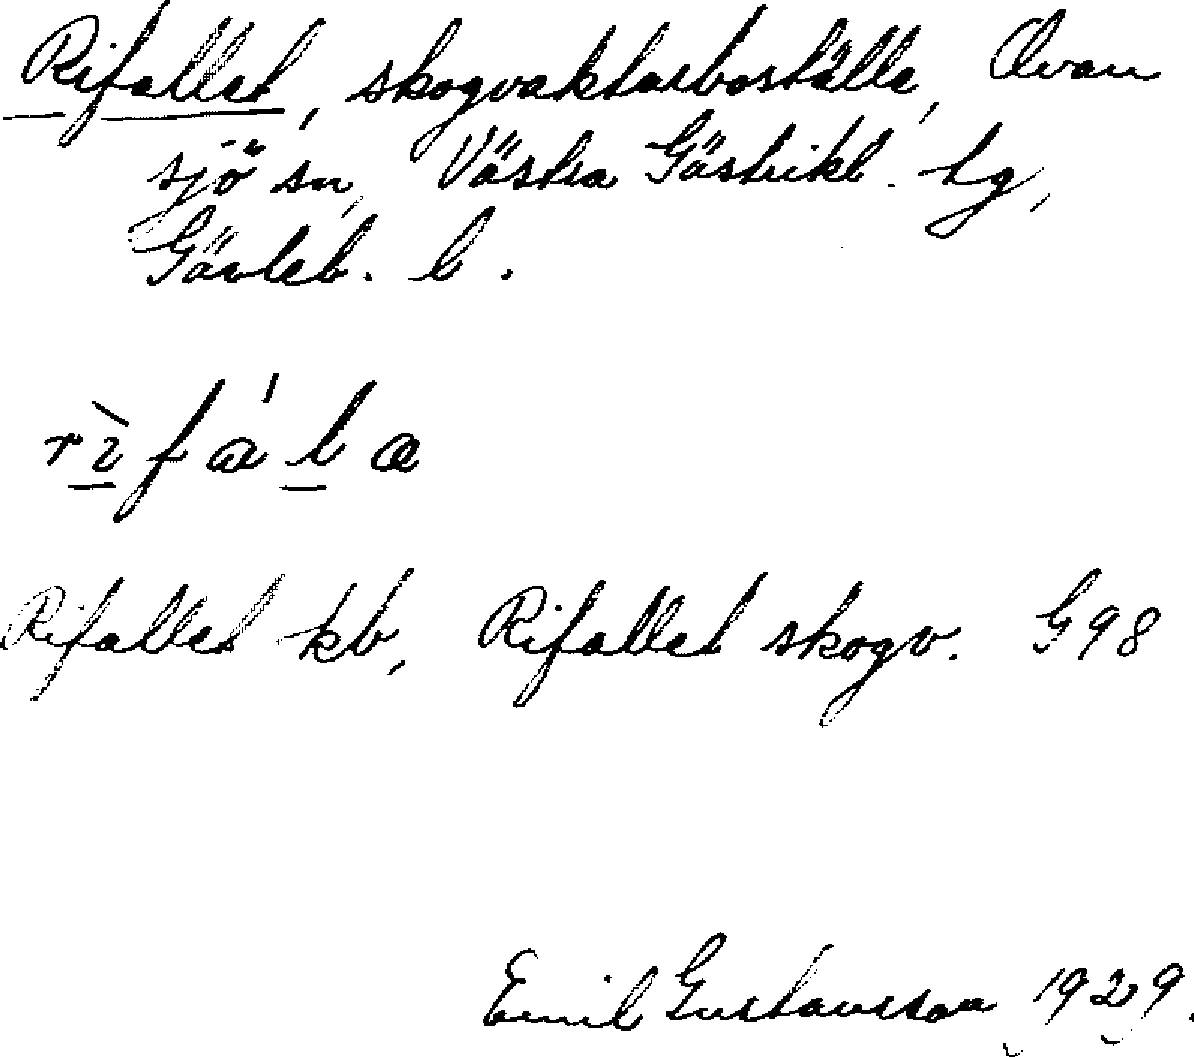 Rifallet, skogvaktarboställe, Ovan
sjö sn, Västra Gästrikl. tg,
Gävleb. l.
rìfál̲a
Rifallet kb, Rifallet skogv. G98
Emil Gustavsson 1929.